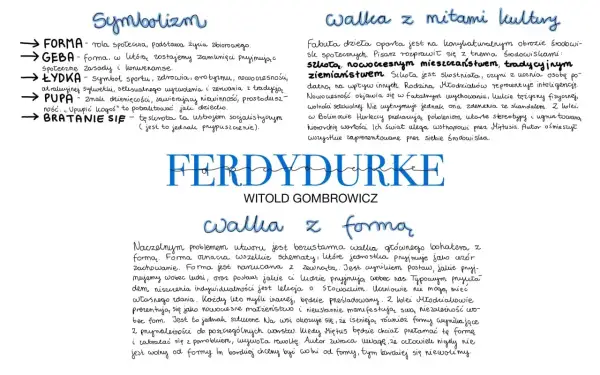 Symbolizm
→ FORMA - rola społeczna, podstawa życia zbiorowego
→ GĘBA - forma, w którą zostajemy zamknięci przyjmując
społeczne zasady i konwenanse.
→ ŁYDKA - symbol sportu, zdrowia, erotyzmu, nowoczesności,
atrakcyjnej sylwetki, seksualnego wyzwolenia i zerwania z tradycją
→ PUPA - znak dziecięcości, zawierający niewinność, prostodusz-
ność. "Upupić kogoś" to potraktować jak dziecko
→ BRATANIE SIĘ - tęsknota za ustrojem socjalistycznym
(jest to jednak przypuszczenie).
Walka z mitami kultury
Fabuła dzieła oparta jest na karykaturalnym obrazie środowi-
sk społecznych. Pisarz rozprawił się z trzema środowiskami:
szkołą, nowoczesnym mieszczaństwem, tradycyjnym
ziemiaństwem. Szkoła jest skostniała, czyni z ucznia osobę po-
datną na wpływ innych. Rodzina Młodziaków reprezentuje inteligencję.
Nowoczesność objawia się w wychowaniu, kulcie tężyzny fizycznej,
wolności seksualnej. Nie wytrzymuje jednak ona zderzenia ze skandalem. Z kolei
w Bolimowie Hurleccy pielęgnują
wartości. Ich świat ulega wstrząsowi przez Miętusa. Autor ośmieszył
wszystkie zaprezentowane przez siebie środowiska.
FERDYDURKE
WITOLD GOMBROWICZ
Walka z formą
Naczelnym problemem utworu jest bezustanna walka głównego bohatera z
formą. Forma oznacza wszelkie schematy, które jednostka przyjmuje jako wzór
zachowania. Forma jest narzucana z zewnątrz. Jest wynikiem postaw, jakie przyj-
mujemy wobec ludzi, oraz postaw jakie ci ludzie przyjmują wobec nas. Typowym przykła-
dem, niszczenia indywidualności jest lekcja o Słowackim. Uczniowie nie mogą mieć
własnego zdania. Każdy kto myśli inaczej, będzie prześladowany. Z kolei Młodziakowie
prezentują się jako nowoczesne małżeństwo i nieustannie manifestują swą niezależność wo-
bec form. Jest to jednak sztuczne. Na wsi okazuje się, że istnieją również formy wynikające
z przynależności do poszczególnych warstw. Kiedy Miętus będzie chciał przełamać tę formę
i zbratać się z parobkiem, wywoła rewoltę. Autor zwraca uwagę, że człowiek nigdy nie
jest wolny od formy. Im bardziej chcemy być wolni od formy, tym bardziej się niewolimy.